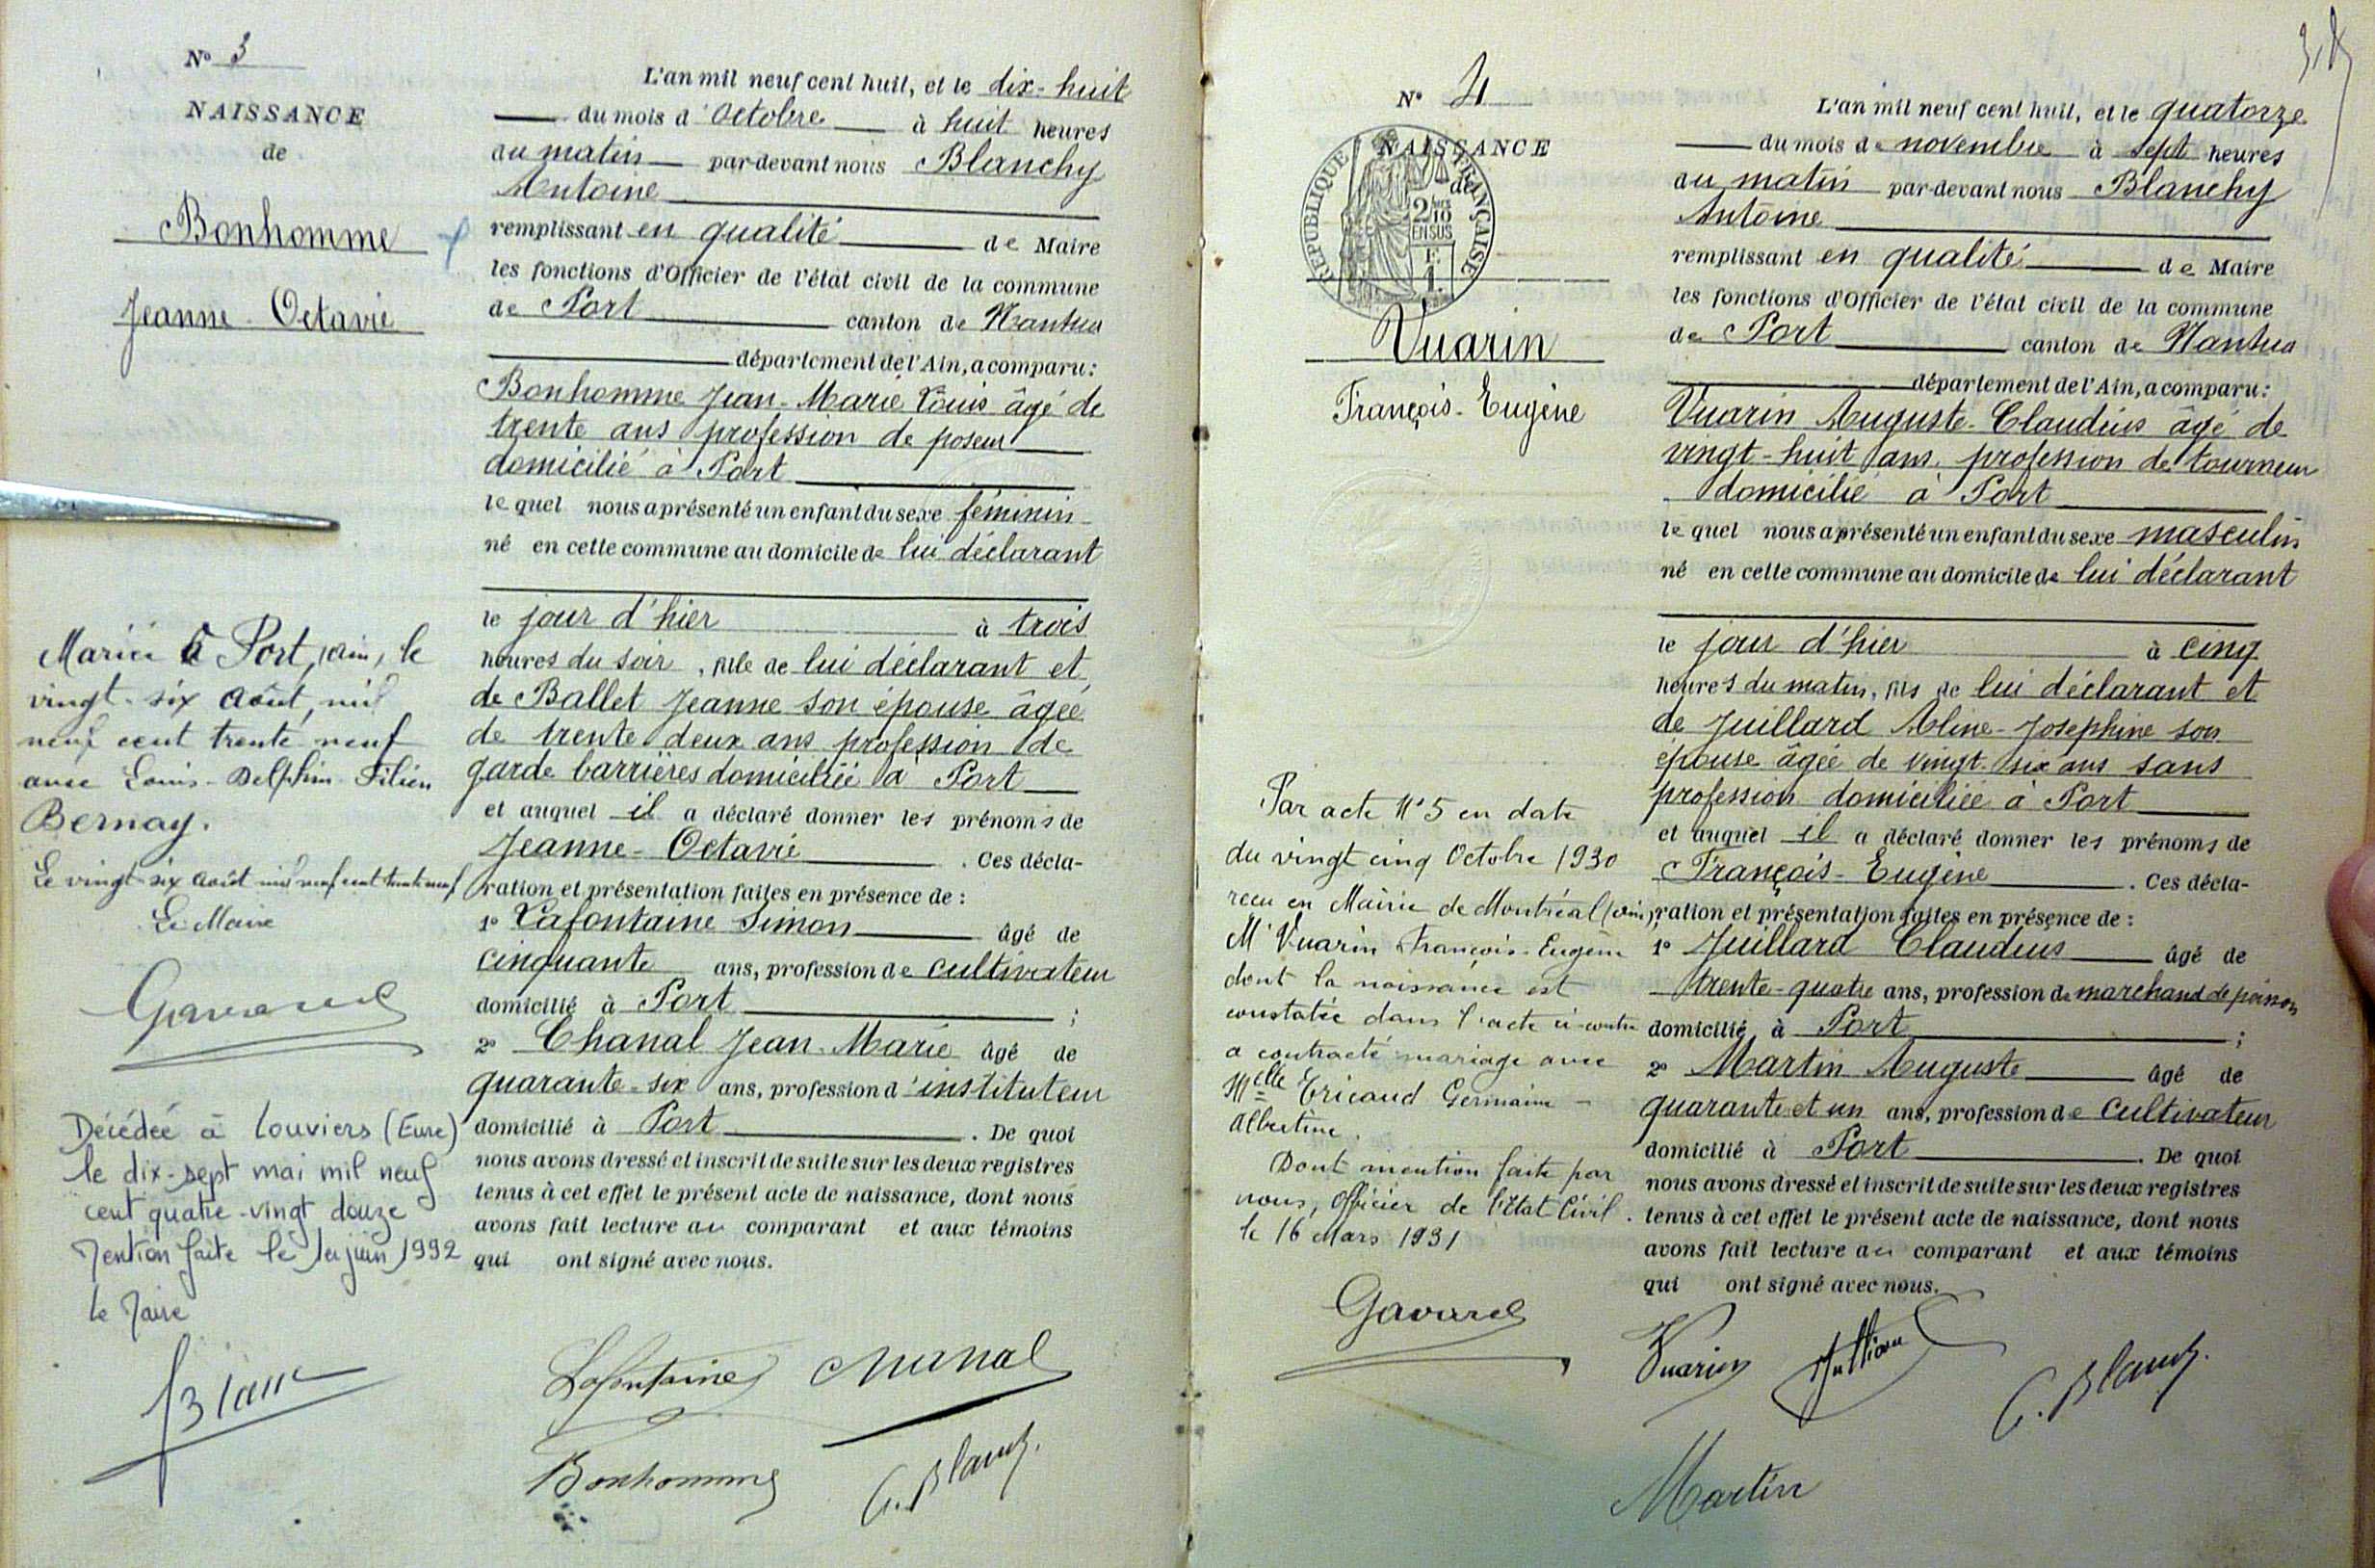 N° 3
NAISSANCE
de
Bonhomme
Jeanne-Octavie
Marié à Port, Ain, le
vingt-six Août, mil
neuf cent trente neuf
avec Louis-Delphin-Filien
Bernay.
Le vingt-six août mil neuf cent trente neuf
Le Maire
Gavarel
Décédée à Louviers (Eure)
le dix-sept mai mil neuf
cent quatre-vingt douze
Mention faite le 1er juin 1992
le Maire
L'an mil neuf cent huit, et le dix-huit
du mois d'Octobre à huit heures
du matin par-devant nous Blanchy
Antoine
remplissant en qualité de Maire
les fonctions d'Officier de l'état civil de la commune
de Port canton de Nantua
département de l'Ain, a comparu:
Bonhomme Jean-Marie Louis âgé de
trente ans profession de poseur
domicilié à Port
lequel nous a présenté un enfant du sexe féminin
né en cette commune au domicile de lui déclarant
le jour d'hier à trois
heures du soir, fille de lui déclarant et
de Ballet Jeanne son épouse âgée
de trente deux ans profession de
garde barrières domiciliée à Port
et auquel il a déclaré donner les prénoms de
Jeanne-Octavie. Ces décla-
ration et présentation faites en présence de :
1° Lafontaine Simon âgé de
cinquante ans, profession de cultivateur
domicilié à Port ;
2° Chanal Jean-Marie âgé de
quarante-six ans, profession d'instituteur
domicilié à Port. De quoi
nous avons dressé et inscrit de suite sur les deux registres
tenus à cet effet le présent acte de naissance, dont nous
avons fait lecture au comparant et aux témoins
qui ont signé avec nous.
Lafontaine Chanal
Bonhomme A. Blanchy
N° 4
NAISSANCE
de
RÉPUBLIQUE FRANÇAISE
2/10
EN SUS
Vuarin
François-Eugène
Par acte N°5 en date
du vingt cinq Octobre 1930
recu en Mairie de Montréal (Ain),
Mr Vuarin François-Eugène
dont la naissance est
constatée dans l'acte ci-contre
a contracté mariage avec
Melle Ericaud Germaine-
Albertine.
Dont mention faite par
nous, Officier de l'Etat Civil.
le 16 Mars 1931
Gavarel
L'an mil neuf cent huit, et le quatorze
du mois de novembre à sept heures
du matin par-devant nous Blanchy
Antoine
remplissant en qualité de Maire
les fonctions d'Officier de l'état civil de la commune
de Port canton de Nantua
département de l'Ain, a comparu:
Vuarin Auguste-Claudius âgé de
vingt-huit ans profession de tourneur
domicilié à Port
lequel nous a présenté un enfant du sexe masculin
né en cette commune au domicile de lui déclarant
le jour d'hier à cinq
heures du matin, fils de lui déclarant et
de Juillard Aline-Josephine son
épouse âgée de vingt-six ans sans
profession domiciliée à Port
et auquel il a déclaré donner les prénoms de
François-Eugène. Ces décla-
ration et présentation faites en présence de :
1° Juillard Claudius âgé de
trente-quatre ans, profession de marchand de poisson
domicilié à Port ;
2° Martin Auguste âgé de
quarante et un ans, profession de cultivateur
domicilié à Port. De quoi
nous avons dressé et inscrit de suite sur les deux registres
tenus à cet effet le présent acte de naissance, dont nous
avons fait lecture au comparant et aux témoins
qui ont signé avec nous.
Vuarin Juillard A. Blanchy
Martin